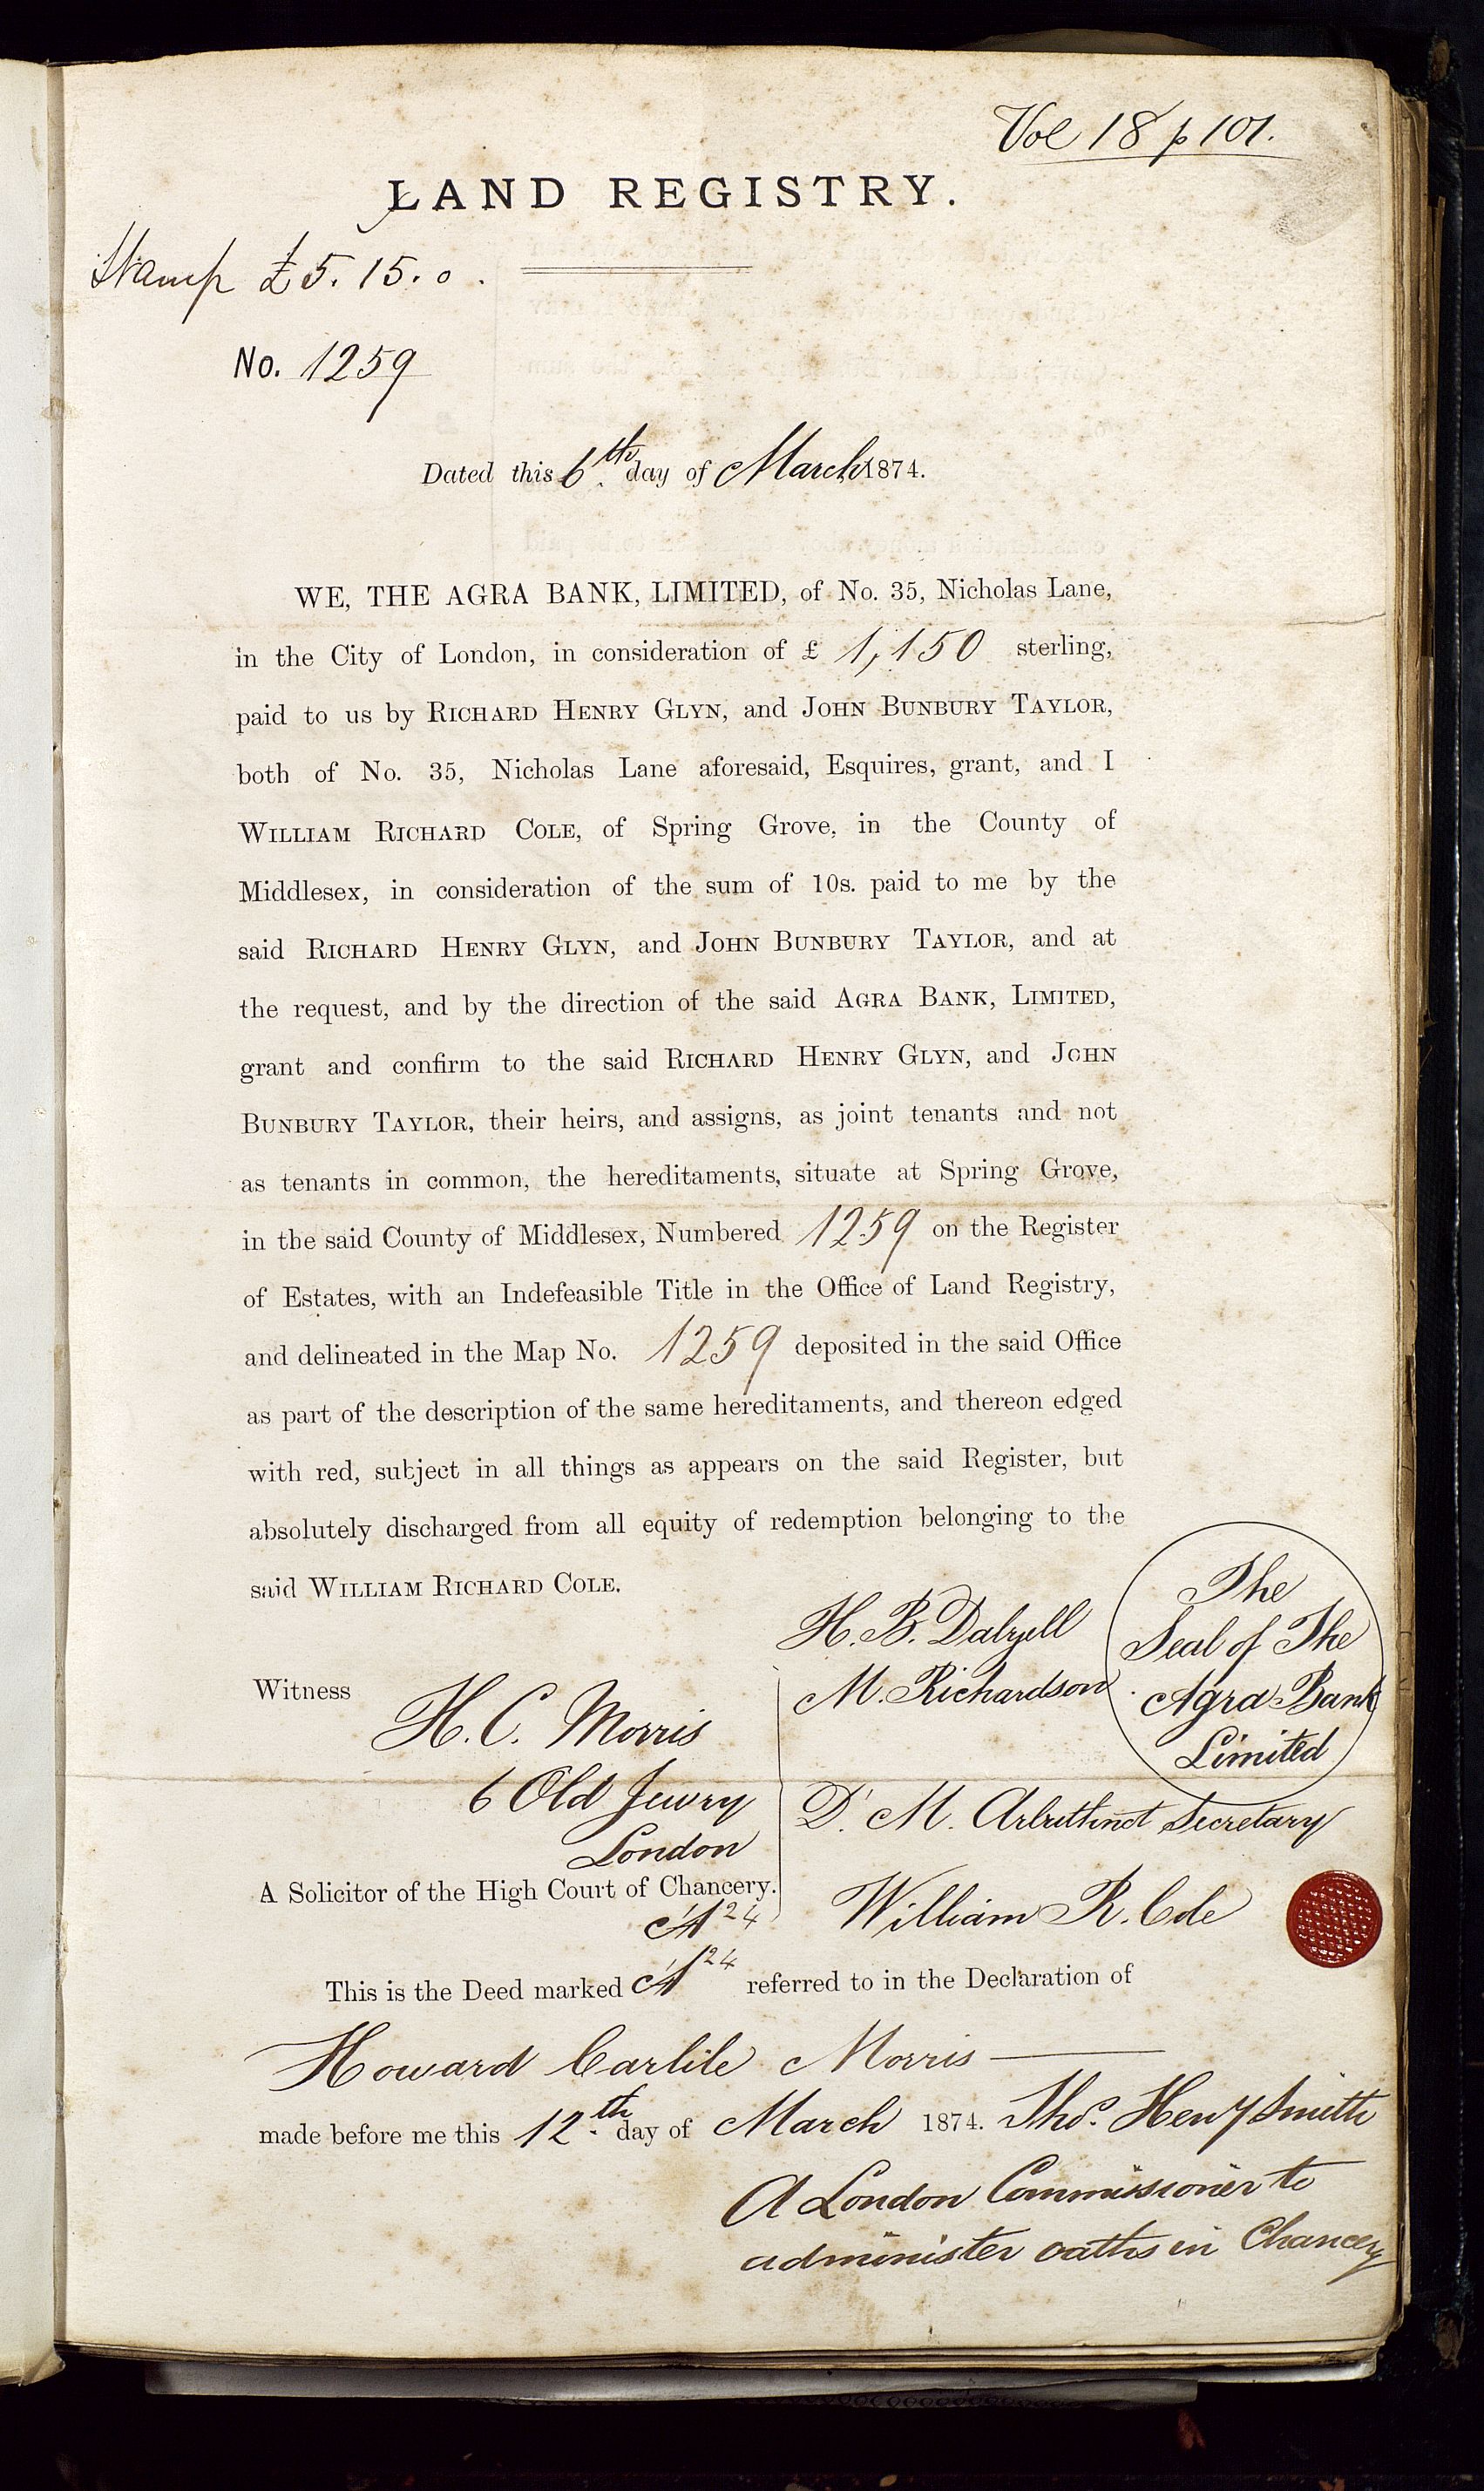 Vol 18 p 101.
LAND REGISTRY.
Stamp £5. 15. 0.
No. 1259
Dated this 6th day of March 1874.
WE, THE AGRA BANK, LIMITED, of No. 35, Nicholas Lane,
in the City of London, in consideration of £ 1,150 sterling,
paid to us by RICHARD HENRY GLYN, and JOHN BUNBURY TAYLOR,
both of No. 35, Nicholas Lane aforesaid, Esquires, grant, and I
WILLIAM RICHARD COLE, of Spring Grove, in the County of
Middlesex, in consideration of the sum of 10s. paid to me by the
said RICHARD HENRY GLYN, and JOHN BUNBURY TAYLOR, and at
the request, and by the direction of the said AGRA BANK, LIMITED,
grant and confirm to the said RICHARD HENRY GLYN, and JOHN
BUNBURY TAYLOR, their heirs, and assigns, as joint tenants and not
as tenants in common, the hereditaments, situate at Spring Grove,
in the said County of Middlesex, Numbered 1259 on the Register
of Estates, with an Indefeasible Title in the Office of Land Registry,
and delineated in the Map No. 1259 deposited in the said Office
as part of the description of the same hereditaments, and thereon edged
with red, subject in all things as appears on the said Register, but
absolutely discharged from all equity of redemption belonging to the
said WILLIAM RICHARD COLE.
H. B. Dalzell
M. Richardson
The
Seal of The
Agra Bank
Limited
Witness
H. C. Morris
6 Old Jewry
London
A Solicitor of the High Court of Chancery.
D. M. Arbuthnot Secretary
William R. Cole
A 24
This is the Deed marked A 24 referred to in the Declaration of
Howard Carlile Morris
made before me this 12th day of March 1874. Thos. Henry Smith
A London Commissioner to
administer oaths in Chancery